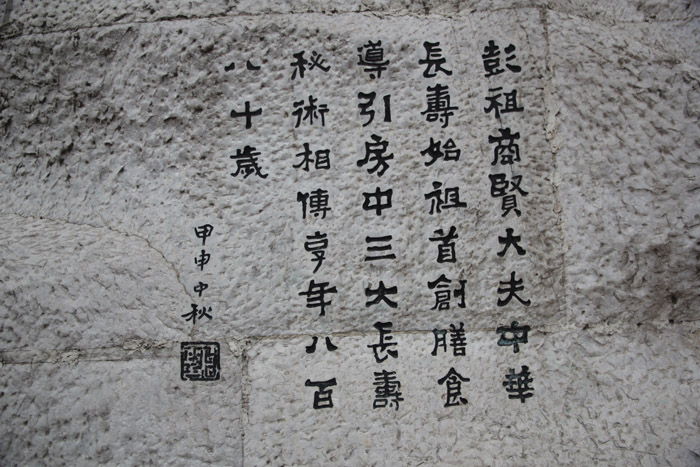 彭祖商賢大夫中華
長壽始祖首創膳食
導引房中三大長壽
秘術相傳享年八百
八十歲
甲申中秋